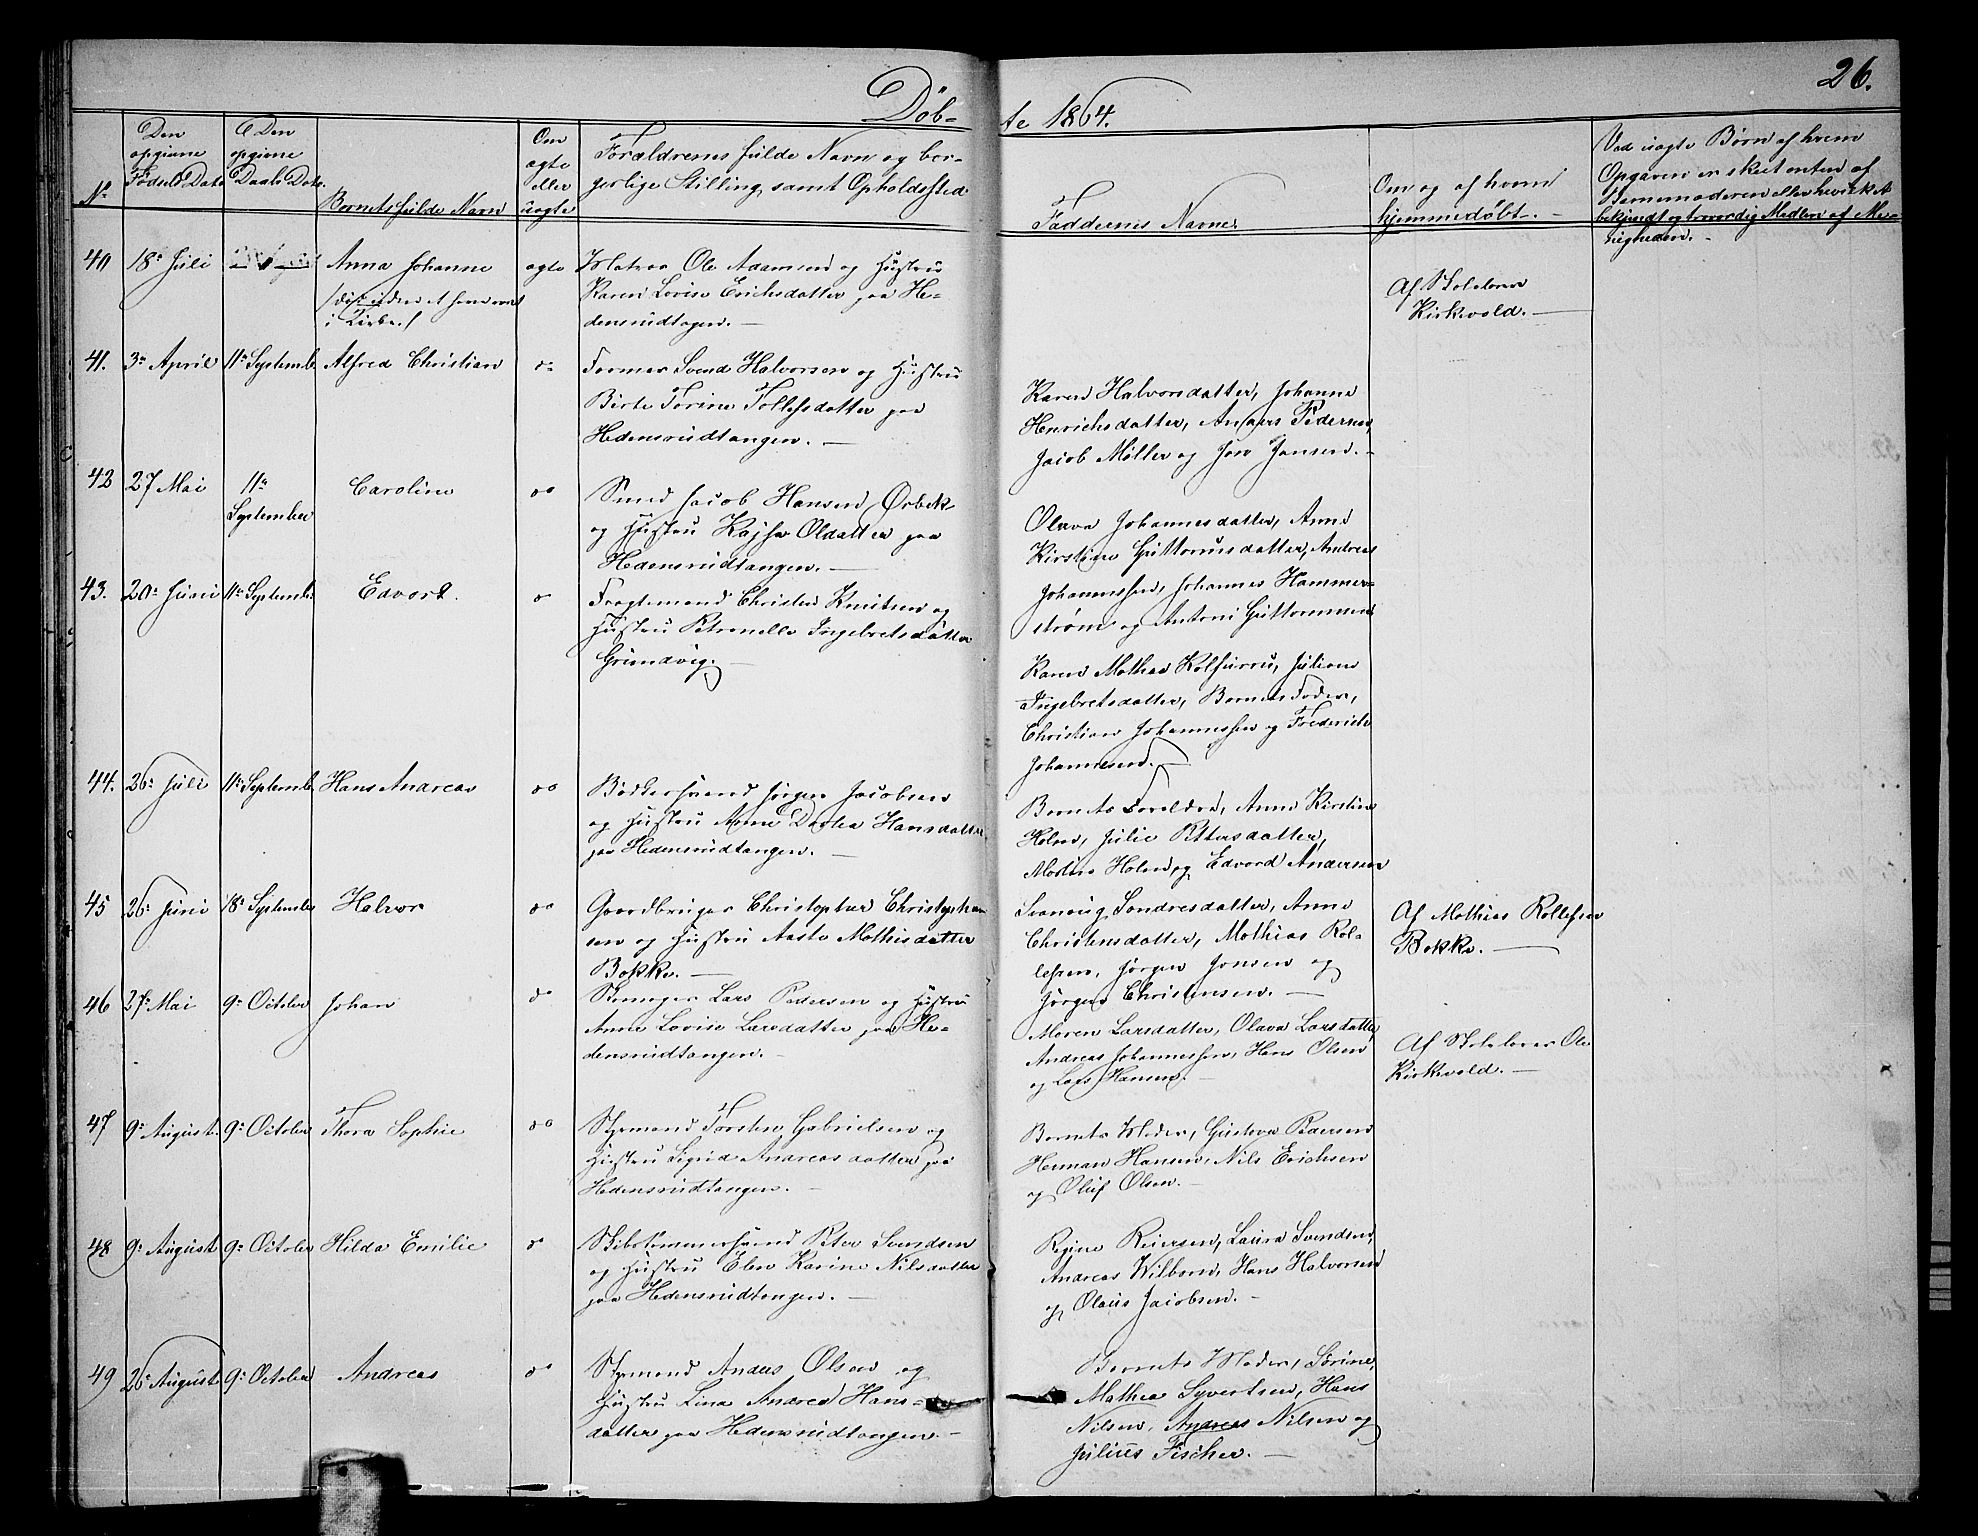 26.
Døb-
te 1864.
No
Den opgivne Fødsels Dato
Den opgivne Daabs Dato
Barnets fulde Navn
Om ægte eller uægte
Forældrenes fulde Navn og bor-
gerlige Stilling samt Opholdssted
Faddernes Navne
Om og af hvem
hjemmedøbt. -
Ved uægte Børn af hvem
Opgaven er skeet enten af
Barnemoderen eller hvilket
bekjendt og troværdig Medlem af Me-
nigheden. -
40 18de Juli Anna Johanne ægte Matros Ole Adamsen og Hustru
Karen Lovise Erichsdatter paa He-
densrudtangen. -
i Kirke.)
Af Skolelærer
Kirkevold. -
41. 3de April 11te Septemb. Alfred Christian do Former Svend Halvorsen og Hustru
Birte Torine Tollefsdatter paa
Hedensrudtangen. -
Karen Halvorsdatter, Johanne
Henrichsdatter, Anders Pedersen,
Jacob Møller og Jon Jansen. -
42 27 Mai 11te September Caroline do Smed Jacob Hansen Ørbek
og Hustru Kajsa Oldatter paa
Hedensrudtangen. -
Olava Johannesdatter, Anne
Kirstine Guttormsdatter, Andreas
Johannessen, Johannes Hammer-
strøm og Antoni Guttormsen
43. 20de Juni 11te Septemb. Edvart. do Fragtemand Christen Knutsen og
Hustru Petronelle Ingebretsdatter
Grundvig. -
Karen Mathea Rolfsurru, Juliane
Ingebretsdatter, Barnets Fader,
Christian Johannessen og Frederich
Johannesen. -
44. 26de Juli 11te Septemb. Hans Andreas do Bødkersvend Jørgen Jacobsen
og Hustru Anne Dortea Hansdatter
paa Hedensrudtangen. -
Barnets Forældre, Anne Kirstine
Holm, Julie Pettersdatter,
Mads Holm og Edvard Andersen
45 26de Juni 18de September Halvor do Gaardbruger Christopher Christophe
sen og Hustru Aaste Mathisdatter
Bakke. -
Svanaug Sondresdatter, Anne
Christensdatter, Mathias Rol-
lefsen, Jørgen Jonsen og
Jørgen Christensen. -
Af Mathias Rollefsen
Bakke. -
46 27de Mai 9de October Johan do Lars Pedersen og Hustru
Anne Lovise Larsdatter paa He-
densrudtangen. -
Maren Larsdatter, Olava Larsdatter,
Andreas Johannessen, Hans Olsen
og Lars Hansen. -
Af Skolelærer Ole
Kirkevold. -
47 9de August. 9de October Thora Sophie do Styrmand Torsten Gabrielsen og
Hustru Sigrid Andreasdatter paa
Hedensrudtangen. -
Barnets Moder, Gustava Pedersen
Herman Hansen, Nils Erichsen
og Oluf Olsen. -
48 9de August 9de October Hilda Emilie do Skibstømmersvend Peter Svendsen
og Hustru Elen Karine Nilsdatter
paa Hedensrudtangen. -
Regine Reiersen, Laura Svendsen,
Andreas Wilborn, Hans Halvorsen
og Olaus Jacobsen. -
49 26de August 9de October Andreas do Styrmand Anders Olsen og
Hustru Lina Andrea Hans-
datter paa Hedensrudtangen. -
Barnets Moder, Sørine
Mathea Syvertsen, Hans
Nilsen, Andreas Nilsen og
Julius Fischer. -